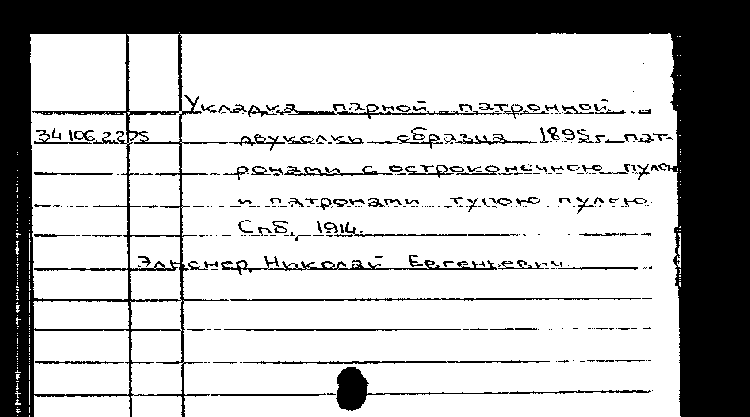 Укладка парной патронной
34 106.2.275 двуколки образца 1895 г. пат-
ронами с остроконечною пулею
и патронами тупою пулею
Спб, 1914.
Эльснер, Николай Евгеньевич